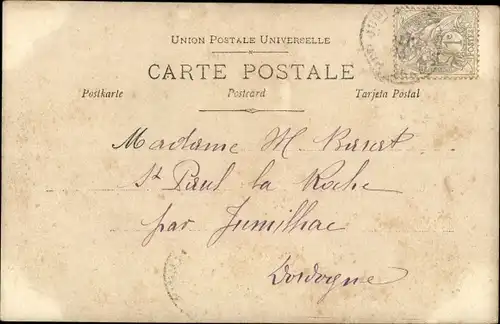 UNION POSTALE UNIVERSELLE
CARTE POSTALE
Postkarte Postcard Tarjeta Postal
Madame M.
St Paul la Roche
par Jumilhac
Dordogne